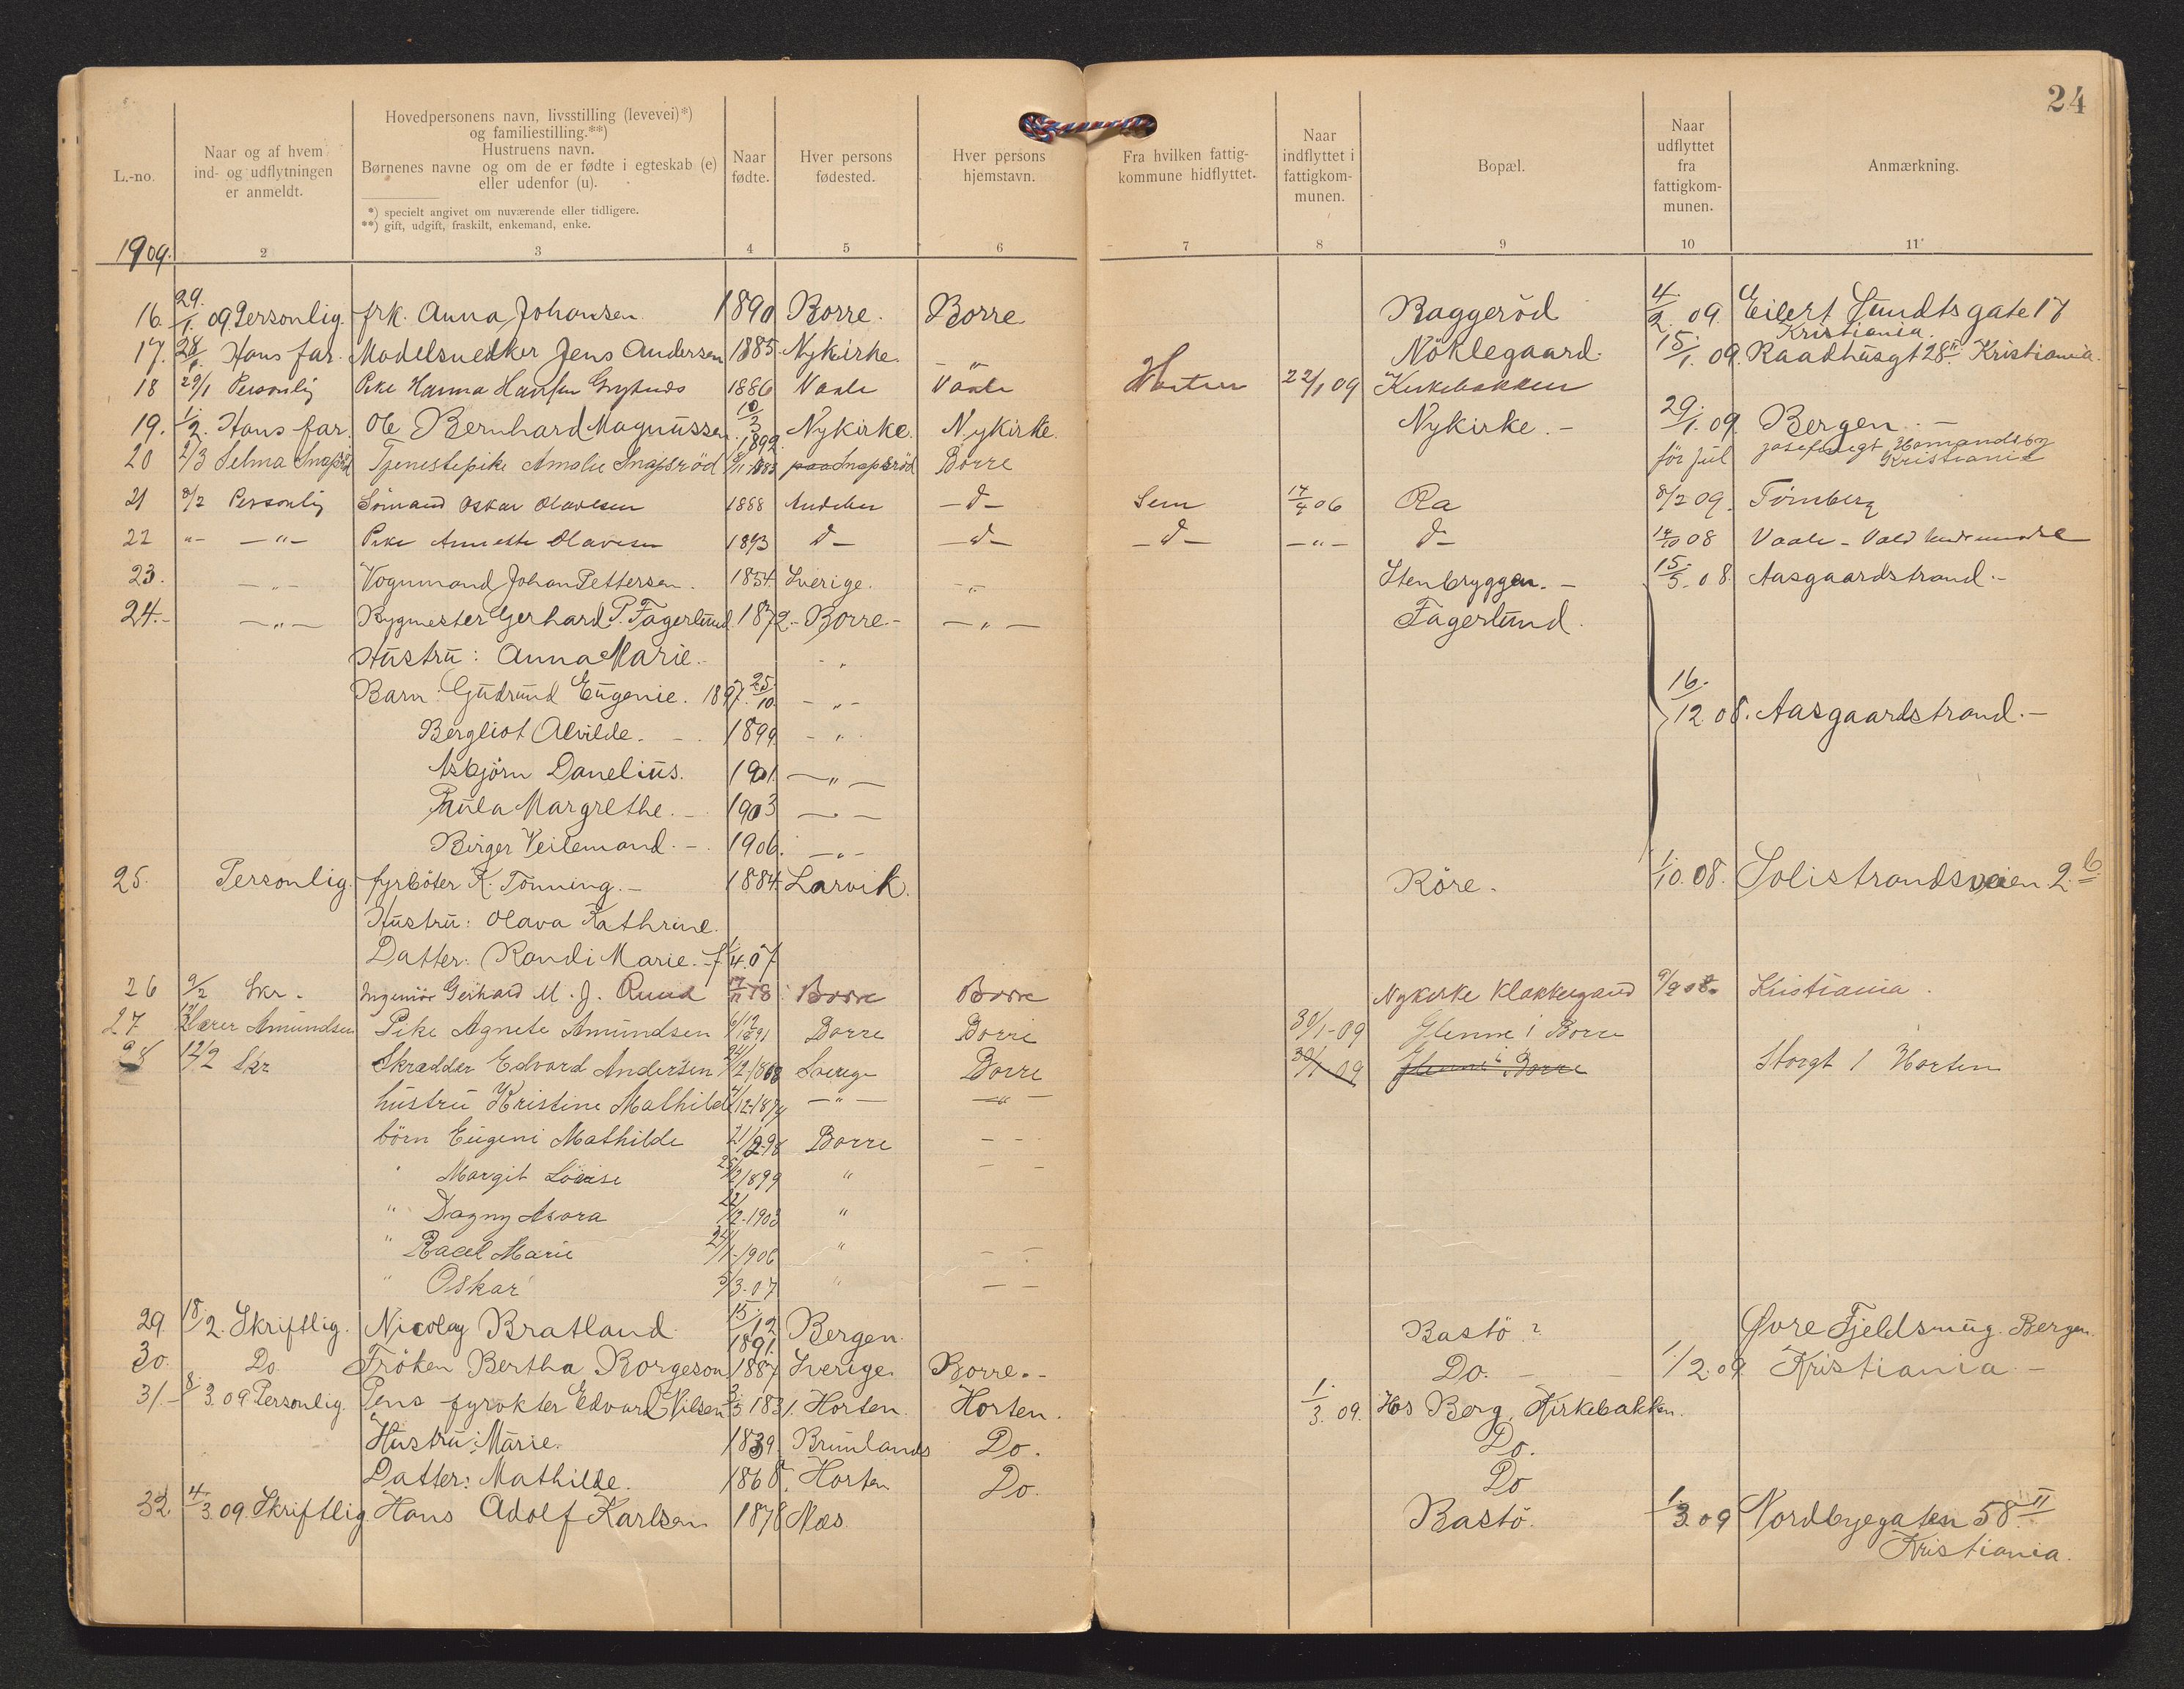 24
L.-no.
Naar og af hvem ind- og udflytningen er anmeldt.
Hovedpersonens navn, livsstilling (levevei)*)
og familiestilling.**)
Hustruens navn.
Børnenes navne og om de er fødte i egteskab (e)
eller udenfor (u).
*) specielt angivet om nuværende eller tidligere.
**) gift, udgift, fraskilt, enkemand, enke.
Naar fødte.
Hver persons fødested.
Hver persons hjemstavn.
Fra hvilken fattigkommune hidflyttet.
Naar indflyttet i fattigkommunen.
Bopæl.
Naar udflyttet fra fattigkommunen.
Anmærkning.
1909. 2 3 4 5 6 7 8 9 10 11
16. 29/1. 09 Personlig. frk. Anna Johansen. 1890 Borre. Borre. Baggeröd 4/2 09. Eilert Sundts gate 17 Kristiania.
17. 28/1. Hans far. Modelsnedker Jens Andersen 1885. Nykirke. - " - Nöklegaard. 15/1. 09. Raadhusgt 28 II Kristiania.
18 29/1 Personlig Pike Hanna Hansen 1886 Vaale Vaale Horten 22/1 09 Kirkebakken
19. 1/2. Hans far. Ole Bernhard Magnussen 10/3 1892. Nykirke. Nykirke. Nykirke. - 29/1. 09. Bergen. -
20 2/3 Selma Snapsröd Tjenestepike Amalie Snapsröd /11 1883 paa Snapsröd Borre för jul Josefinegt Homandsby Kristiania
21 8/2 Personlig Sömand Oskar Olavesen 1888 Andebu - d - Sem 17/4 06 Ra 8/2 09. Tönsberg
22 " - " - Pike Annette Olavesen 1893 d - - d - - d - - " - d - 14/10 08 Vaale -
23. - " - Vognmand Johan Pettersen. 1854 Sverige. - " - Stenbryggen. - 15/5. 08. Aasgaardstrand. -
24. - - " - Bygmester Gerhard P. Fagerlund. 1872. - Borre. - - " - Fagerlund.
Hustru: Anna Marie. - "
Barn: Gudrund Eugenie. 1897. 25/10 - " - 16/12 08. Aasgaardstrand. -
Bergliot Alvilde. - 1899 - "
Asbjörn Danelius. 1901. - " -
Paula Margrethe. - 1903 - " -
Birger Veilemand. - 1906. - " -
25. Personlig. fyrböter K. Tonning. - 1884. Larvik. Röre. 1/10. 08. Solistrandsveien 2 b
Hustru: Olava Kathrine.
Datter: Randi Marie. f 1/4. 07
26 9/2 Skr. Ingeniör Gerhard M. J. Ruud 78 Borre Borre Nykirke Klokkergaard 9/2 08. Kristiania.
27. Amundsen Pike Agnete Amundsen 6/12 1891 Borre Borre 30/1-09 Glenne i Borre
28 12/2 Skr Skrædder Edvard Andersen 24/2-1868 Sverige Borre 30/1 09 Glenne i Borre Storgt 1 Horten
hustru Kristine Mathilde /12-1874 - " - - " -
börn Eugeni Mathilde 21/2-98 Borre - -
" Margit Lovise 25/2 1899 " - -
" Dagny Asora 22/2-1903 "
" Racel Marie 24/1-1906 " - -
" Oskar 5/3-07 " - -
29. 18/2. Skriftlig. Nicolay Bratland. 15/12 1891. Bergen. Bastö? Øvre Fjeldsmug. Bergen.
30. Do. Fröken Bertha Borgeson 1887 Sverige. Borre. - Do. - 1/2. 09. Kristiania. -
31. - 8/3. 09 Personlig. Pens fyrvokter Edvard Nilsen 3/5 1831. Horten. Horten. 1/3. 09. Hos Berg, Kirkebakken.
Hustru: Marie. 1839. Brunlands Do. Do.
Datter: Mathilde. 1868. Horten Do. Do
32 4/3. 09. Skriftlig Hans Adolf Karlsen 1878 Næs. Bastö. 1/3. 09 Nordbyegaten 58 II
Kristiania.